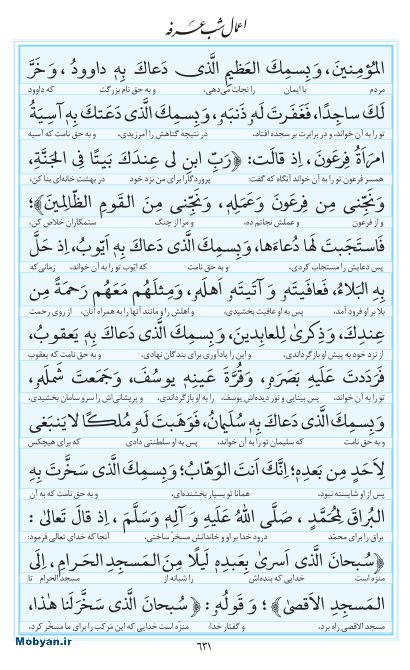 اعمال شب عرفه
المُؤمِنینَ، وَبِسمِكَ العَظیمِ الَّذی دَعاكَ بِهِ داوودُ، وَخَرَّ
مردم با ایمان را نجات می‌دهی، و به حق نام بزرگت که داوود
لَكَ ساجِدًا، فَغَفَرتَ لَهُ ذَنبَهُ، وَبِسمِكَ الَّذی دَعَتكَ بِهِ آسِیَةُ
تو را به آن خواند، و در برابرت بر سجده افتاد، در نتیجه گناهش را آمرزیدی، و به حق نامت که آسیه
امرَاَةُ فِرعَونَ، اِذ قالَت: ﴿رَبِّ ابنِ لی عِندَكَ بَیتًا فِی الجَنَّةِ،
همسر فرعون تو را به آن خواند آنگاه که گفت: پروردگارا برای من نزد خود در بهشت خانه‌ای بنا کن،
وَنَجِّنی مِن فِرعَونَ وَعَمَلِهِ، وَنَجِّنی مِنَ القَومِ الظّالِمینَ﴾؛
و از فرعون و عملش نجاتم ده، و مرا از چنگ ستمکاران خلاص کن،
فَاستَجَبتَ لَها دُعاءَها، وَبِسمِكَ الَّذی دَعاكَ بِهِ اَیّوبُ، اِذ حَلَّ
پس دعایش را مستجاب کردی، و به حق نامت که ایّوب تو را به آن خواند، زمانی که
بِهِ البَلاءُ، فَعافَیتَهُ وَ آتَیتَهُ اَهلَهُ، وَمِثلَهُم مَعَهُم رَحمَةً مِن
بلا بر او فرود آمد، پس به او عافیت بخشیدی، و اهلش را و مانند آنها را به همراه آنان، از روی رحمت
عِندِكَ، وَذِكریٰ لِلعابِدینَ، وَبِسمِكَ الَّذی دَعاكَ بِهِ یَعقوبُ،
از نزد خود به پیش او بازگرداندی، و این را یادآوری برای بندگان نهادی، و به حق نامت که یعقوب
فَرَدَدتَ عَلَیهِ بَصَرَهُ، وَقُرَّةَ عَینِهِ یوسُفَ، وَجَمَعتَ شَملَهُ،
تو را به آن خواند، پس بینایی و نور دیده‌اش یوسف، را به او بازگرداندی، و پریشانی‌اش را سرو سامان بخشیدی،
وَبِسمِكَ الَّذی دَعاكَ بِهِ سُلَیمانُ، فَوَهَبتَ لَهُ مُلكًا لا یَنبَغی
و به حق نامت که سلیمان تو را به آن خواند، پس به او سلطنتی دادی که برای هیچکس
لِاَحَدٍ مِن بَعدِهِ؛ اِنَّكَ اَنتَ الوَهّابُ؛ وَبِسمِكَ الَّذی سَخَّرتَ بِهِ
پس از او شایسته نبود، همانا تو بسیار بخشنده‌ای، و به حق نامت که به آن
البُراقَ لِمُحَمَّدٍ، صَلَّی اللهُ عَلَیهِ وَ آلِهِ وَسَلَّمَ، اِذ قالَ تَعالیٰ:
براق را برای محمّد درود خدا بر او و خاندانش مسخّر ساختی، آنجا که خدای تعالی فرمود:
﴿سُبحانَ الَّذی اَسریٰ بِعَبدِهِ لَیلًا مِنَ المَسجِدِ الحَرامِ، اِلَی
منزه است خدایی که بنده‌اش را شبانه از مسجد الحرام تا
المَسجِدِ الاَقصیٰ﴾؛ وَ قَولُهُ: ﴿سُبحانَ الَّذی سَخَّرَ لَنا هٰذا،
مسجد الاقصی راه برد، و گفتار خدا: منزّه است خدایی که این مَرکب را برای ما مسخّر کرد.
۶۳۱
Mobyan.ir